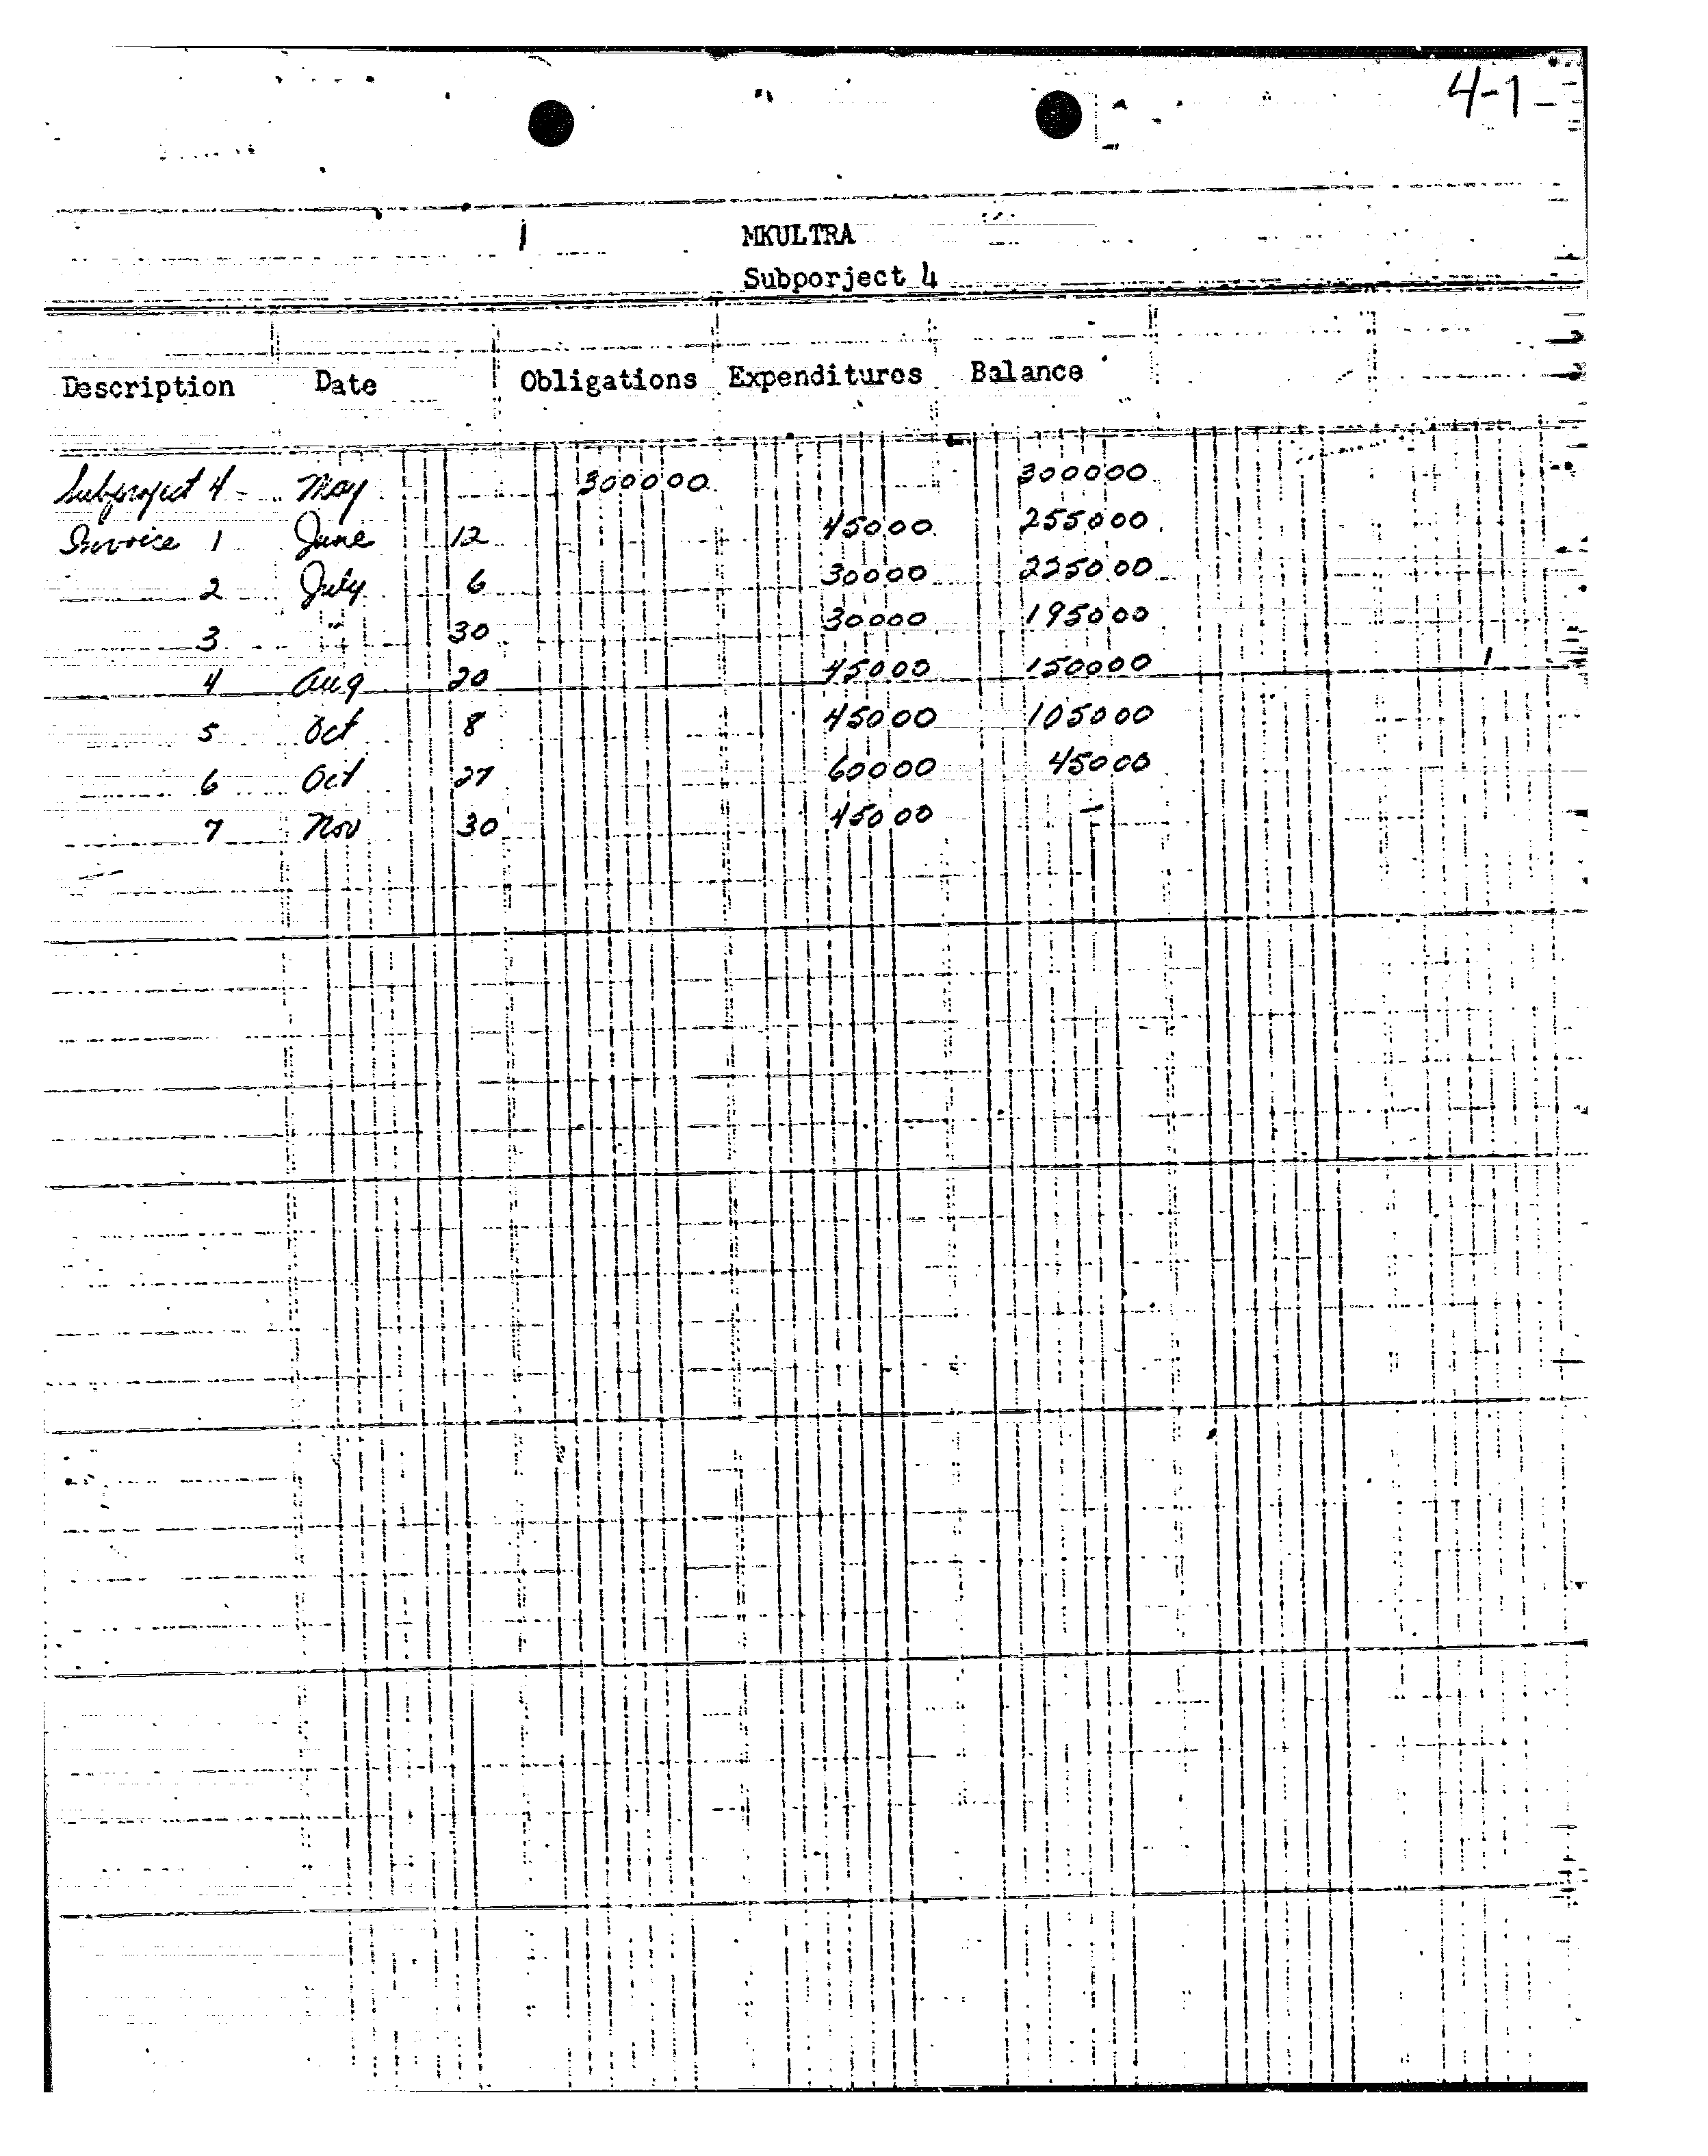 4-1
MKULTRA
Subporject 4
Description Date Obligations Expenditures Balance
Subproject 4 - May 300000 300000
Invoice 1 June 12 45000 255000
2 July 6 30000 225000
3 " 30 30000 195000
4 Aug 20 45000 150000
5 Oct 8 45000 105000
6 Oct 27 60000 45000
7 Nov 30 45000 —